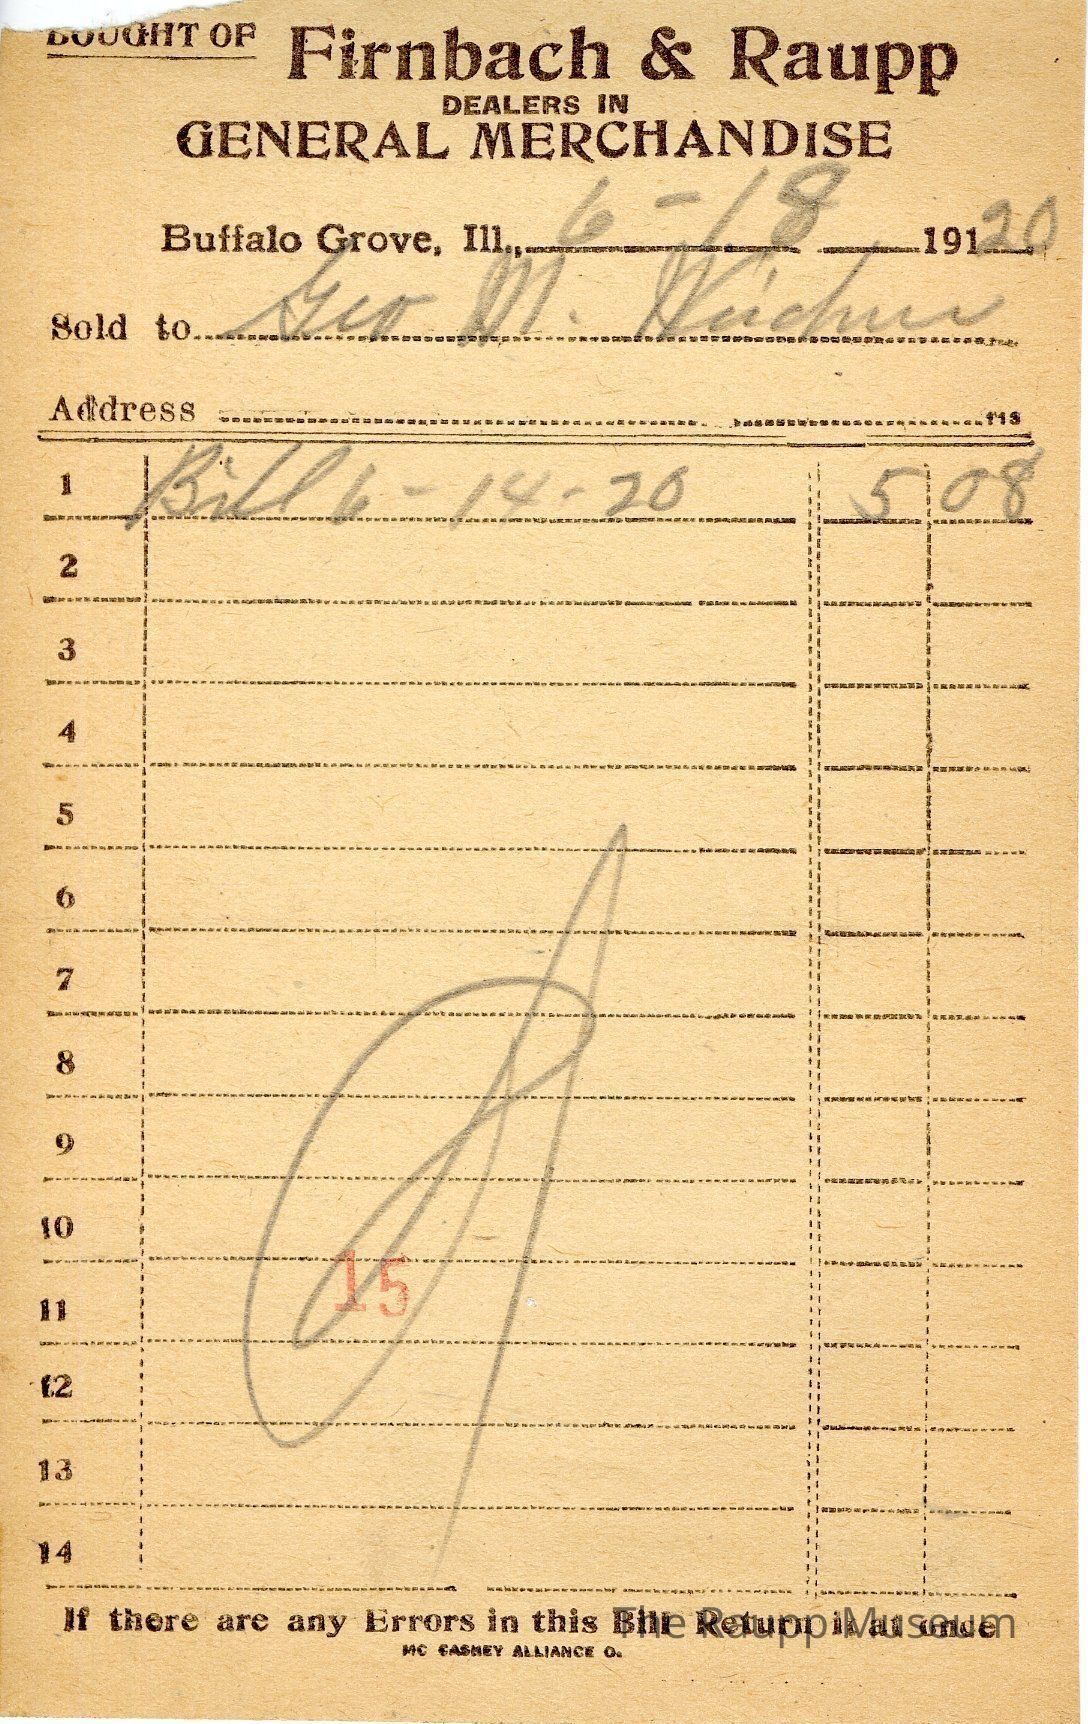 BOUGHT OF Firnbach & Raupp
DEALERS IN
GENERAL MERCHANDISE
Buffalo Grove, Ill., 6-18 191 20
Sold to Geo M.
Address
1 Bill 6-14-20 5 08
2
3
4
5
6
7
8
9
10
15
11
12
13
14
If there are any Errors in this Bill Return it at once
The Raupp Museum
MC CASKEY ALLIANCE O.